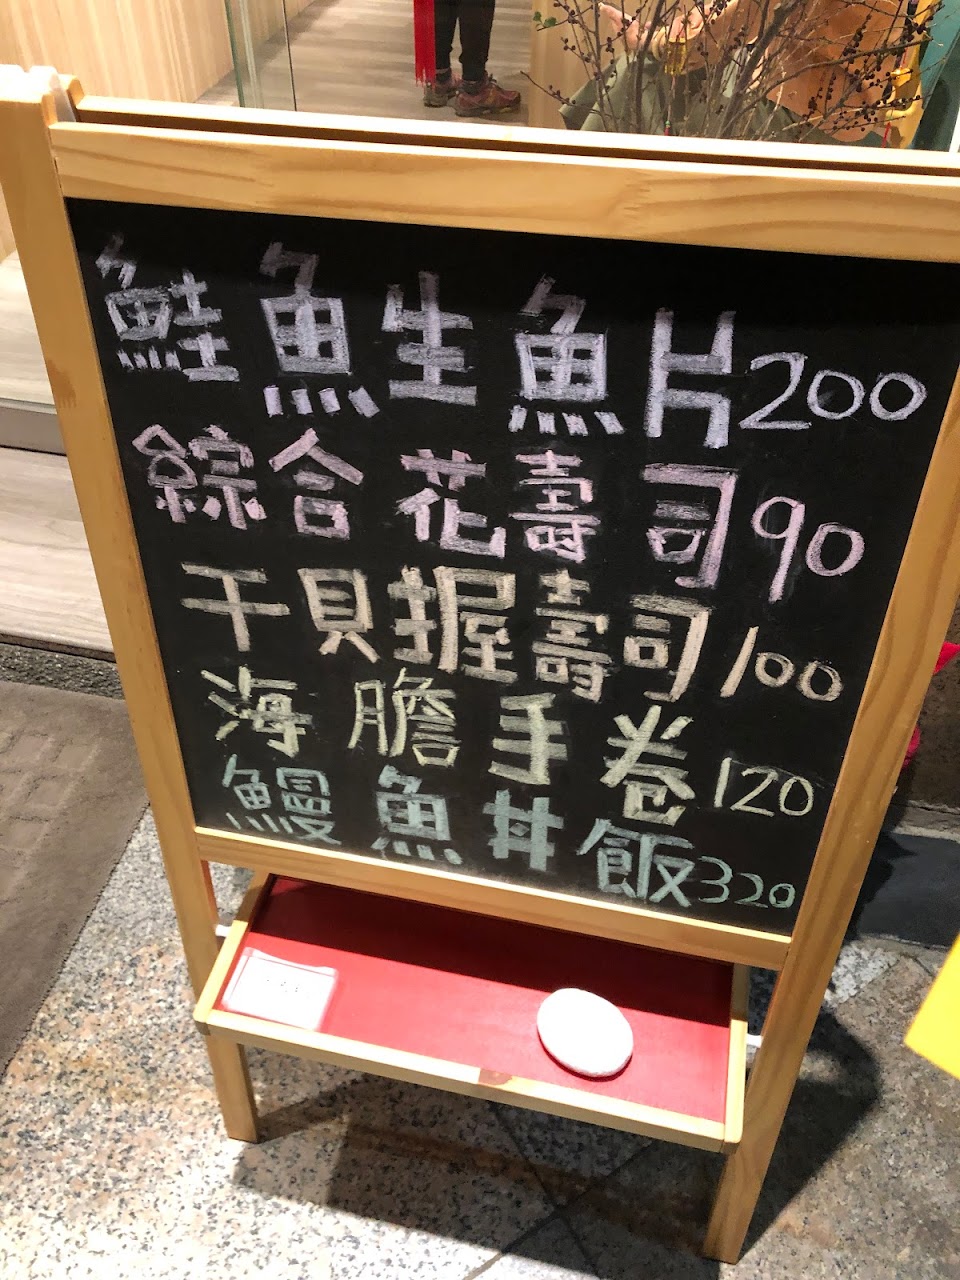 鮭魚生魚片200
綜合花壽司90
干貝握壽司100
海膽手卷120
鰻魚丼飯320